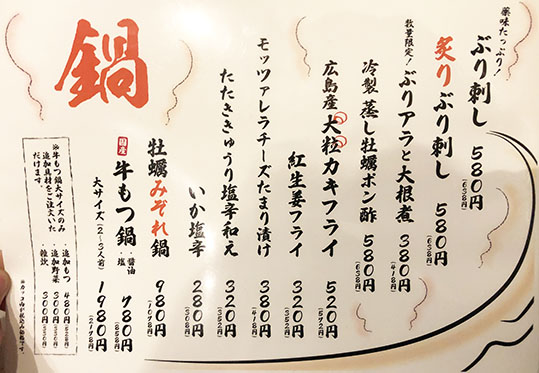 薬味たっぷり!
ぶり刺し 580円
(638円)
炙りぶり刺し 580円
(638円)
数量限定!
ぶりアラと大根煮 380円
(418円)
冷製 蒸し牡蠣ポン酢 580円
(638円)
広島産 大粒カキフライ 520円
(572円)
紅生姜フライ 320円
(352円)
モッツァレラチーズたまり漬け 380円
(418円)
たたききゅうり塩辛和え 320円
(352円)
いか塩辛 280円
(308円)
鍋
牡蠣みぞれ鍋 980円
(1078円)
国産 牛もつ鍋 ・醤油 ・塩 780円
(858円)
大サイズ(2~3人前) 1980円
(2178円)
※牛もつ鍋大サイズのみ
追加具材をご注文いた
だけます。
・追加もつ 480円(528円)
・追加野菜 300円(330円)
・雑炊 300円(330円)
※カッコ内が税込み価格です。